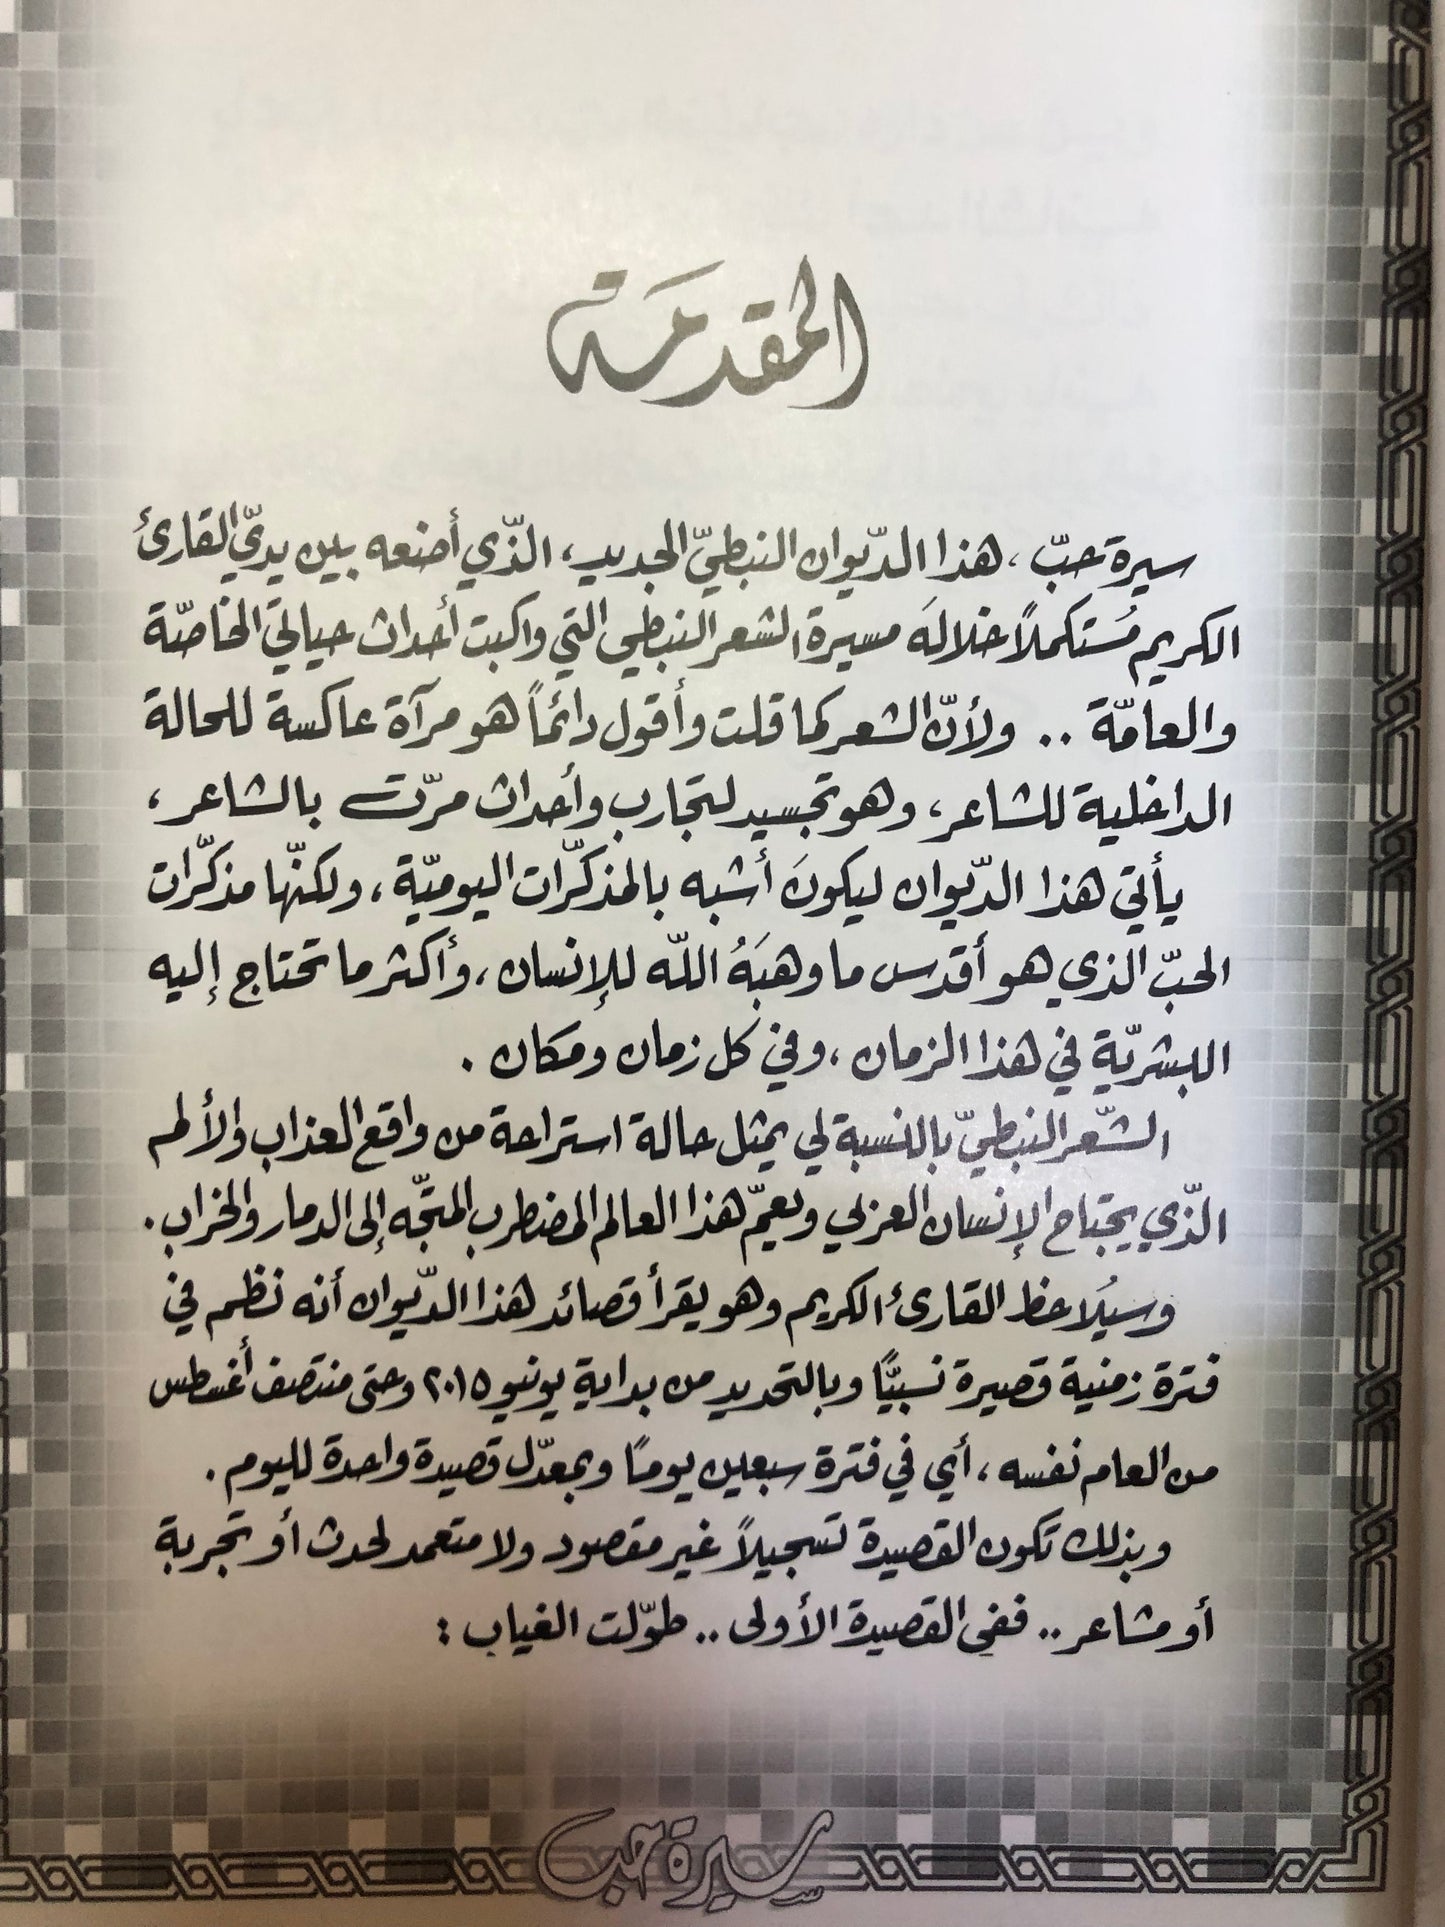 المقدمة
سيرة حبّ، هذا الدّيوان النبطيّ الجديد، الذّي أضعه بين يديّ القارئ
الكريم مُستكملاً خلالَه مسيرة الشعر النبطي التي واكبت أحداث حياتي الخاصّة
والعامّة .. ولأنّ الشعر كما قلت وأقول دائماً هو مرآة عاكسة للحالة
الداخلية للشاعر، وهو تجسيد لتجارب وأحداث مرّت بالشاعر،
يأتي هذا الدّيوان ليكونَ أشبه بالمذكّرات اليوميّة، ولكنّها مذكّرات
الحبّ الذي هو أقدس ما وهبَهُ اللّه للإنسان، وأكثر ما تحتاج إليه
البشريّة في هذا الزمان، وفي كل زمان ومكان .
الشّعر النبطيّ بالنسبة لي يمثل حالة استراحة من واقع العذاب والألم
الذّي يجتاح الإنسان العربي ويعمّ هذا العالم المضطرب المتجّه إلى الدمار والخراب .
وسيُلاحظ القارئ الكريم وهو يقرأ قصائد هذا الدّيوان أنه نظم في
فترة زمنية قصيرة نسبيًّا وبالتحديد من بداية يونيو ٢٠١٥ وحتى منتصف أغسطس
من العام نفسه، أي في فترة سبعين يومًا وبمعدّل قصيدة واحدة لليوم .
وبذلك تكون القصيدة تسجيلاً غير مقصود ولا متعمد لحدث أو تجربة
أو مشاعر .. ففي القصيدة الأولى .. طوّلت الغياب :
سيرة حب